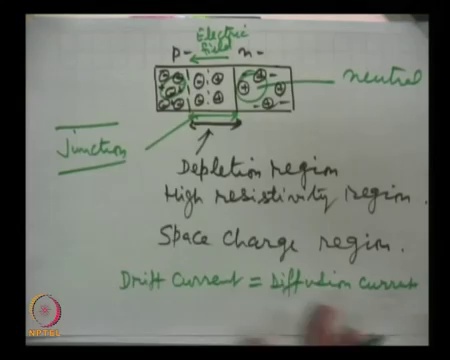 Electric
field
p- n-
neutral
Junction
Depletion region
High resistivity region.
Space Charge region.
Drift Current = Diffusion current
NPTEL